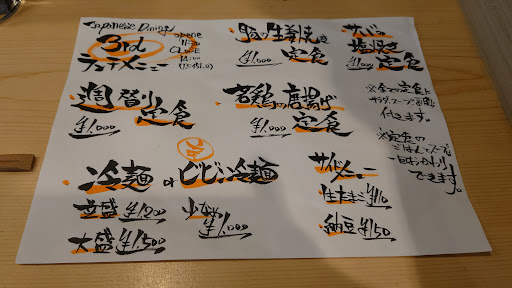 Japanese Dining
3rd
open
11:30
CLOSE
14:00
豚の生姜焼き
定食
¥1,000
サバの
塩焼き
定食
¥1,000
週替り
定食
¥1,000
若鶏の唐揚げ
定食
¥1,000
※全ての定食に
サラダ、スープ、
付きます。
※定食の
ごはん、スープ
一回おかわり
できます。
冷麺 or ビビン冷麺
普盛 ¥1,200
大盛 ¥1,500
少なめ
¥1,000
サイドメニュー
生たまご ¥110
納豆 ¥150